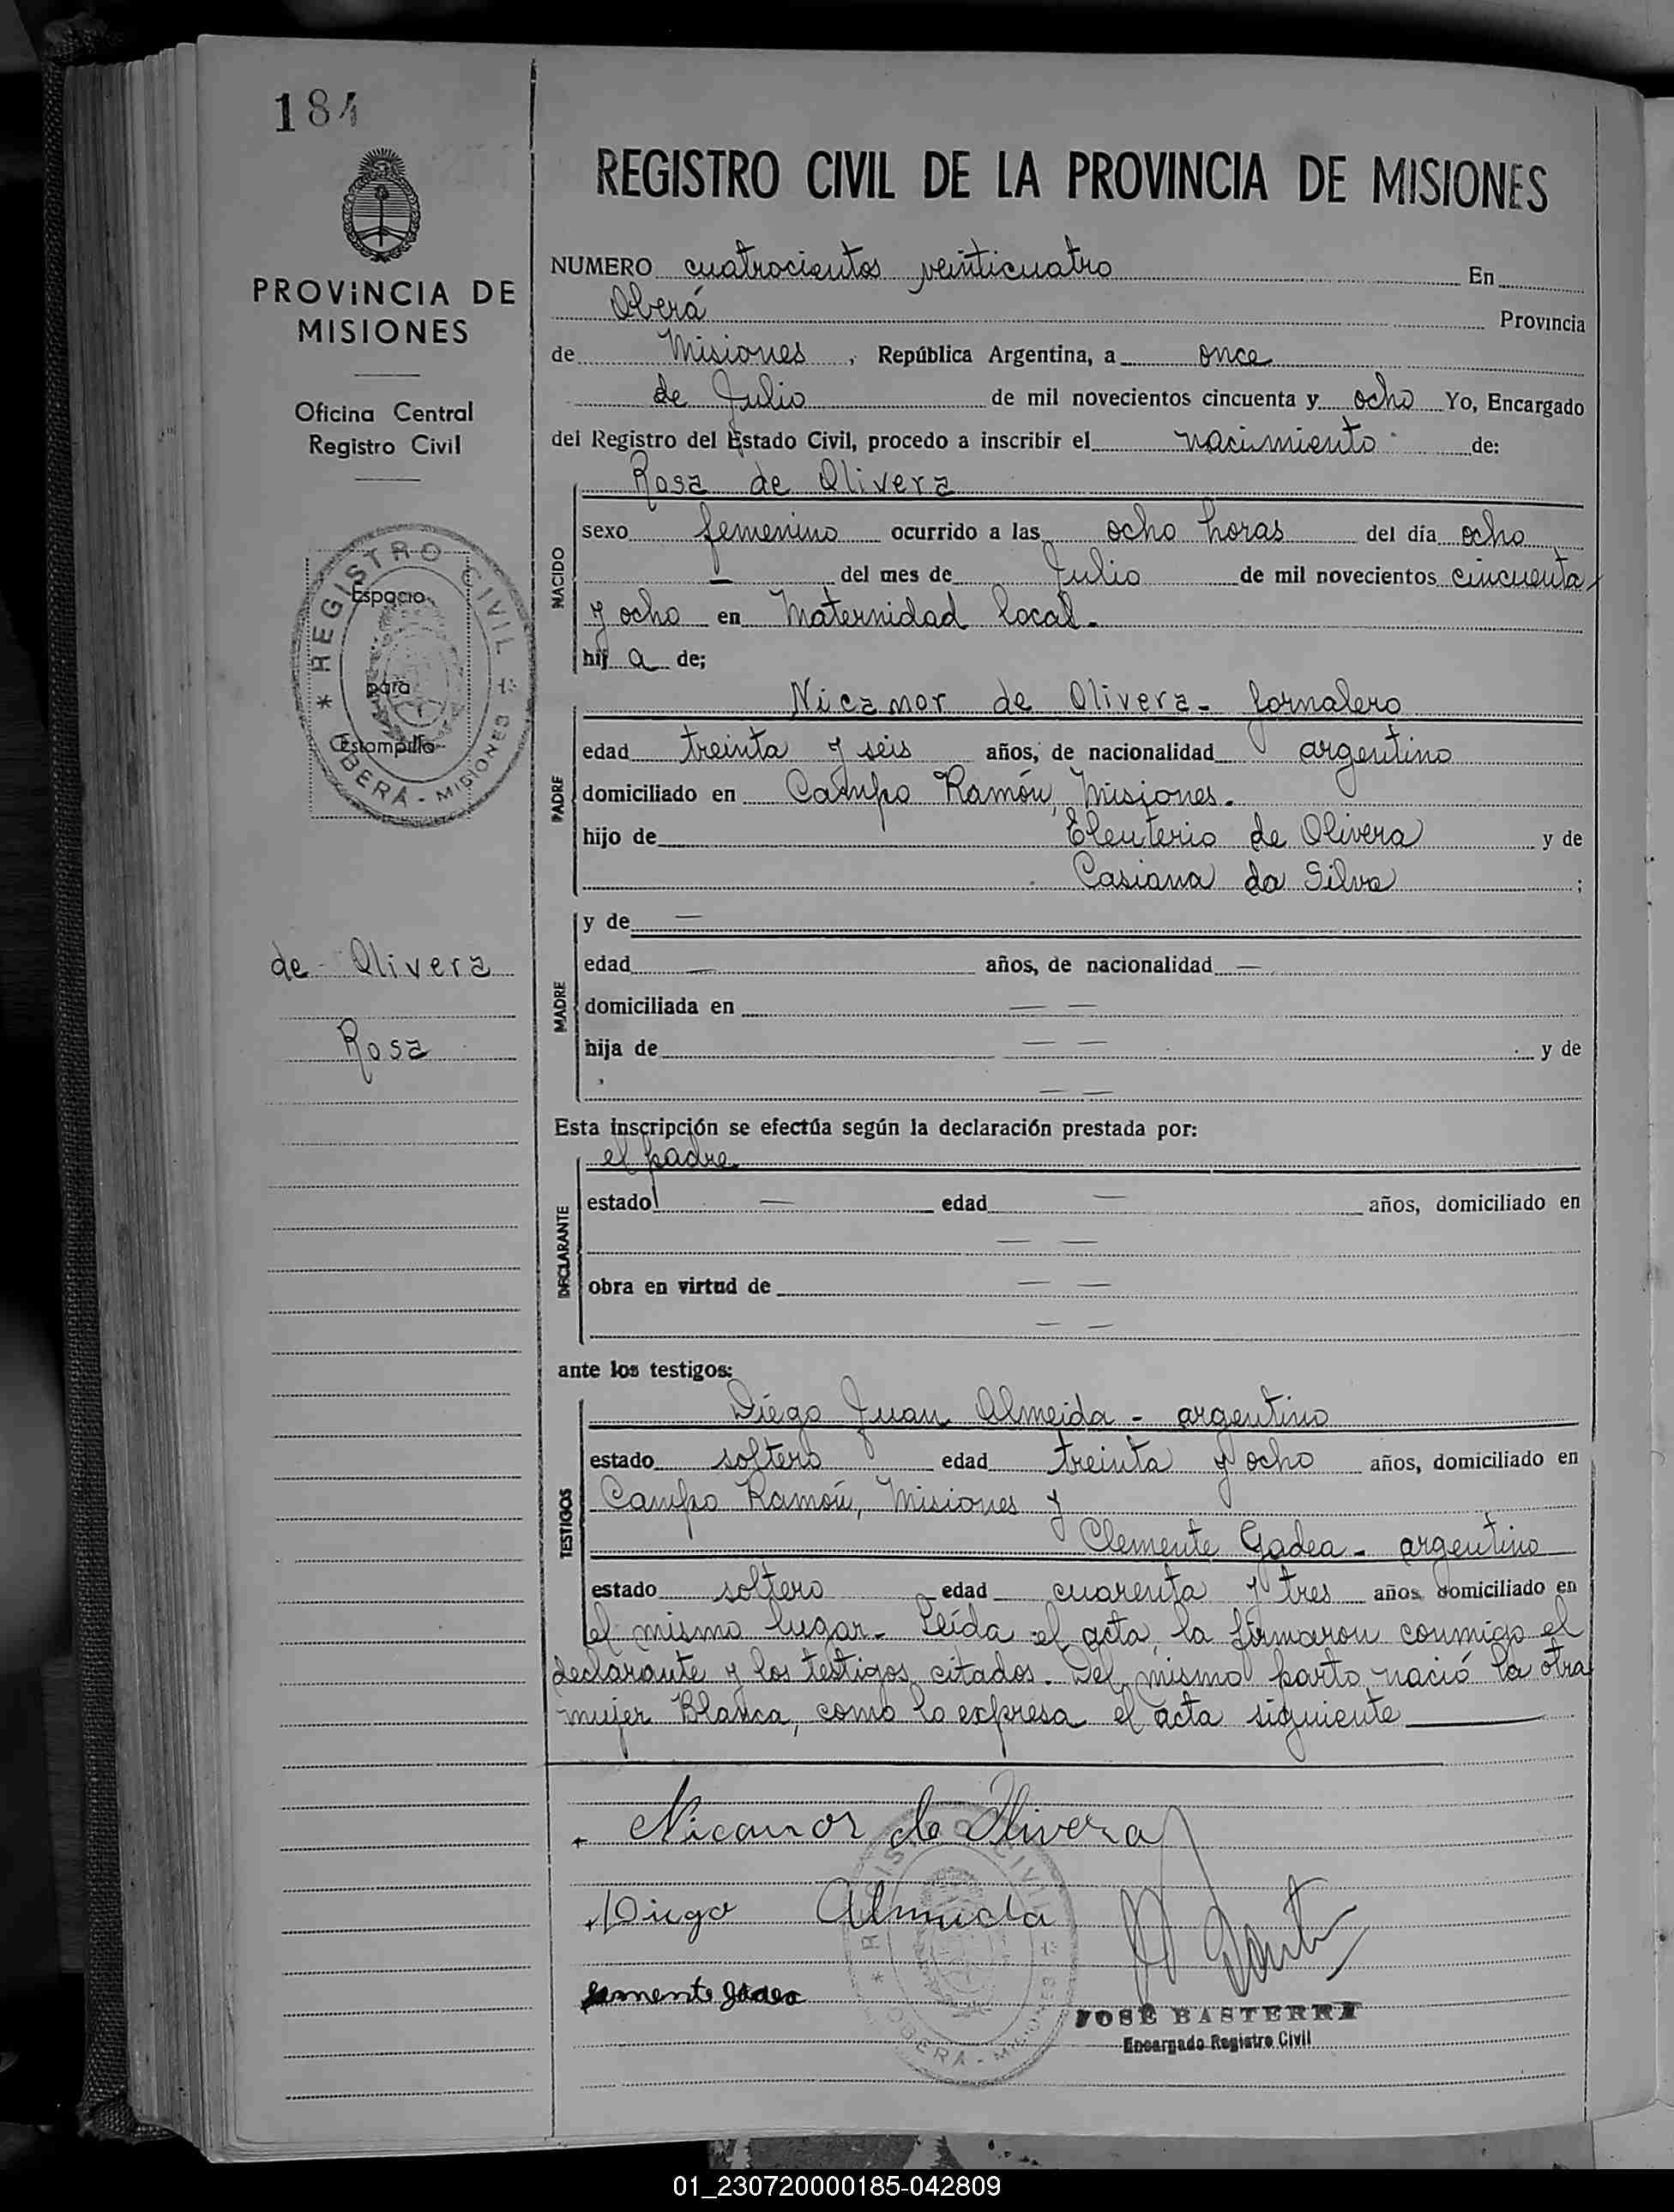 184
PROVINCIA DE
MISIONES
Oficina Central
Registro Civil
* REGISTRO CIVIL *
OBERÁ - MISIONES
Espacio
para
Estampilla
de Olivera
Rosa
REGISTRO CIVIL DE LA PROVINCIA DE MISIONES
NUMERO cuatrocientos veinticuatro En
Oberá Provincia
de Misiones, República Argentina, a once
de Julio de mil novecientos cincuenta y ocho Yo, Encargado
del Registro del Estado Civil, procedo a inscribir el nacimiento de:
NACIDO
Rosa de Olivera
sexo femenino ocurrido a las ocho horas del día ocho
— del mes de Julio de mil novecientos cincuenta
y ocho en Maternidad local.
hij a de;
PADRE
Nicanor de Olivera - Jornalero
edad treinta y seis años, de nacionalidad argentino
domiciliado en Campo Ramón, Misiones.
hijo de Eleuterio de Olivera y de
Casiana da Silva ;
MADRE
y de —
edad — años, de nacionalidad —
domiciliada en — —
hija de — — y de
— —
Esta inscripción se efectúa según la declaración prestada por:
DECLARANTE
el padre
estado — edad — años, domiciliado en
— —
obra en virtud de — —
— —
ante los testigos:
TESTIGOS
Diego Juan Almeida - argentino
estado soltero edad treinta y ocho años, domiciliado en
Campo Ramón, Misiones y
Clemente Gadea - argentino
estado soltero edad cuarenta y tres años, domiciliado en
el mismo lugar. Leída el acta, la firmaron conmigo el
declarante y los testigos citados. Del mismo parto nació la otra
mujer Blanca, como lo expresa el acta siguiente
Nicanor de Olivera
Diego Almeida
JOSÉ BASTERRA
Encargado Registro Civil
01_230720000185-042809